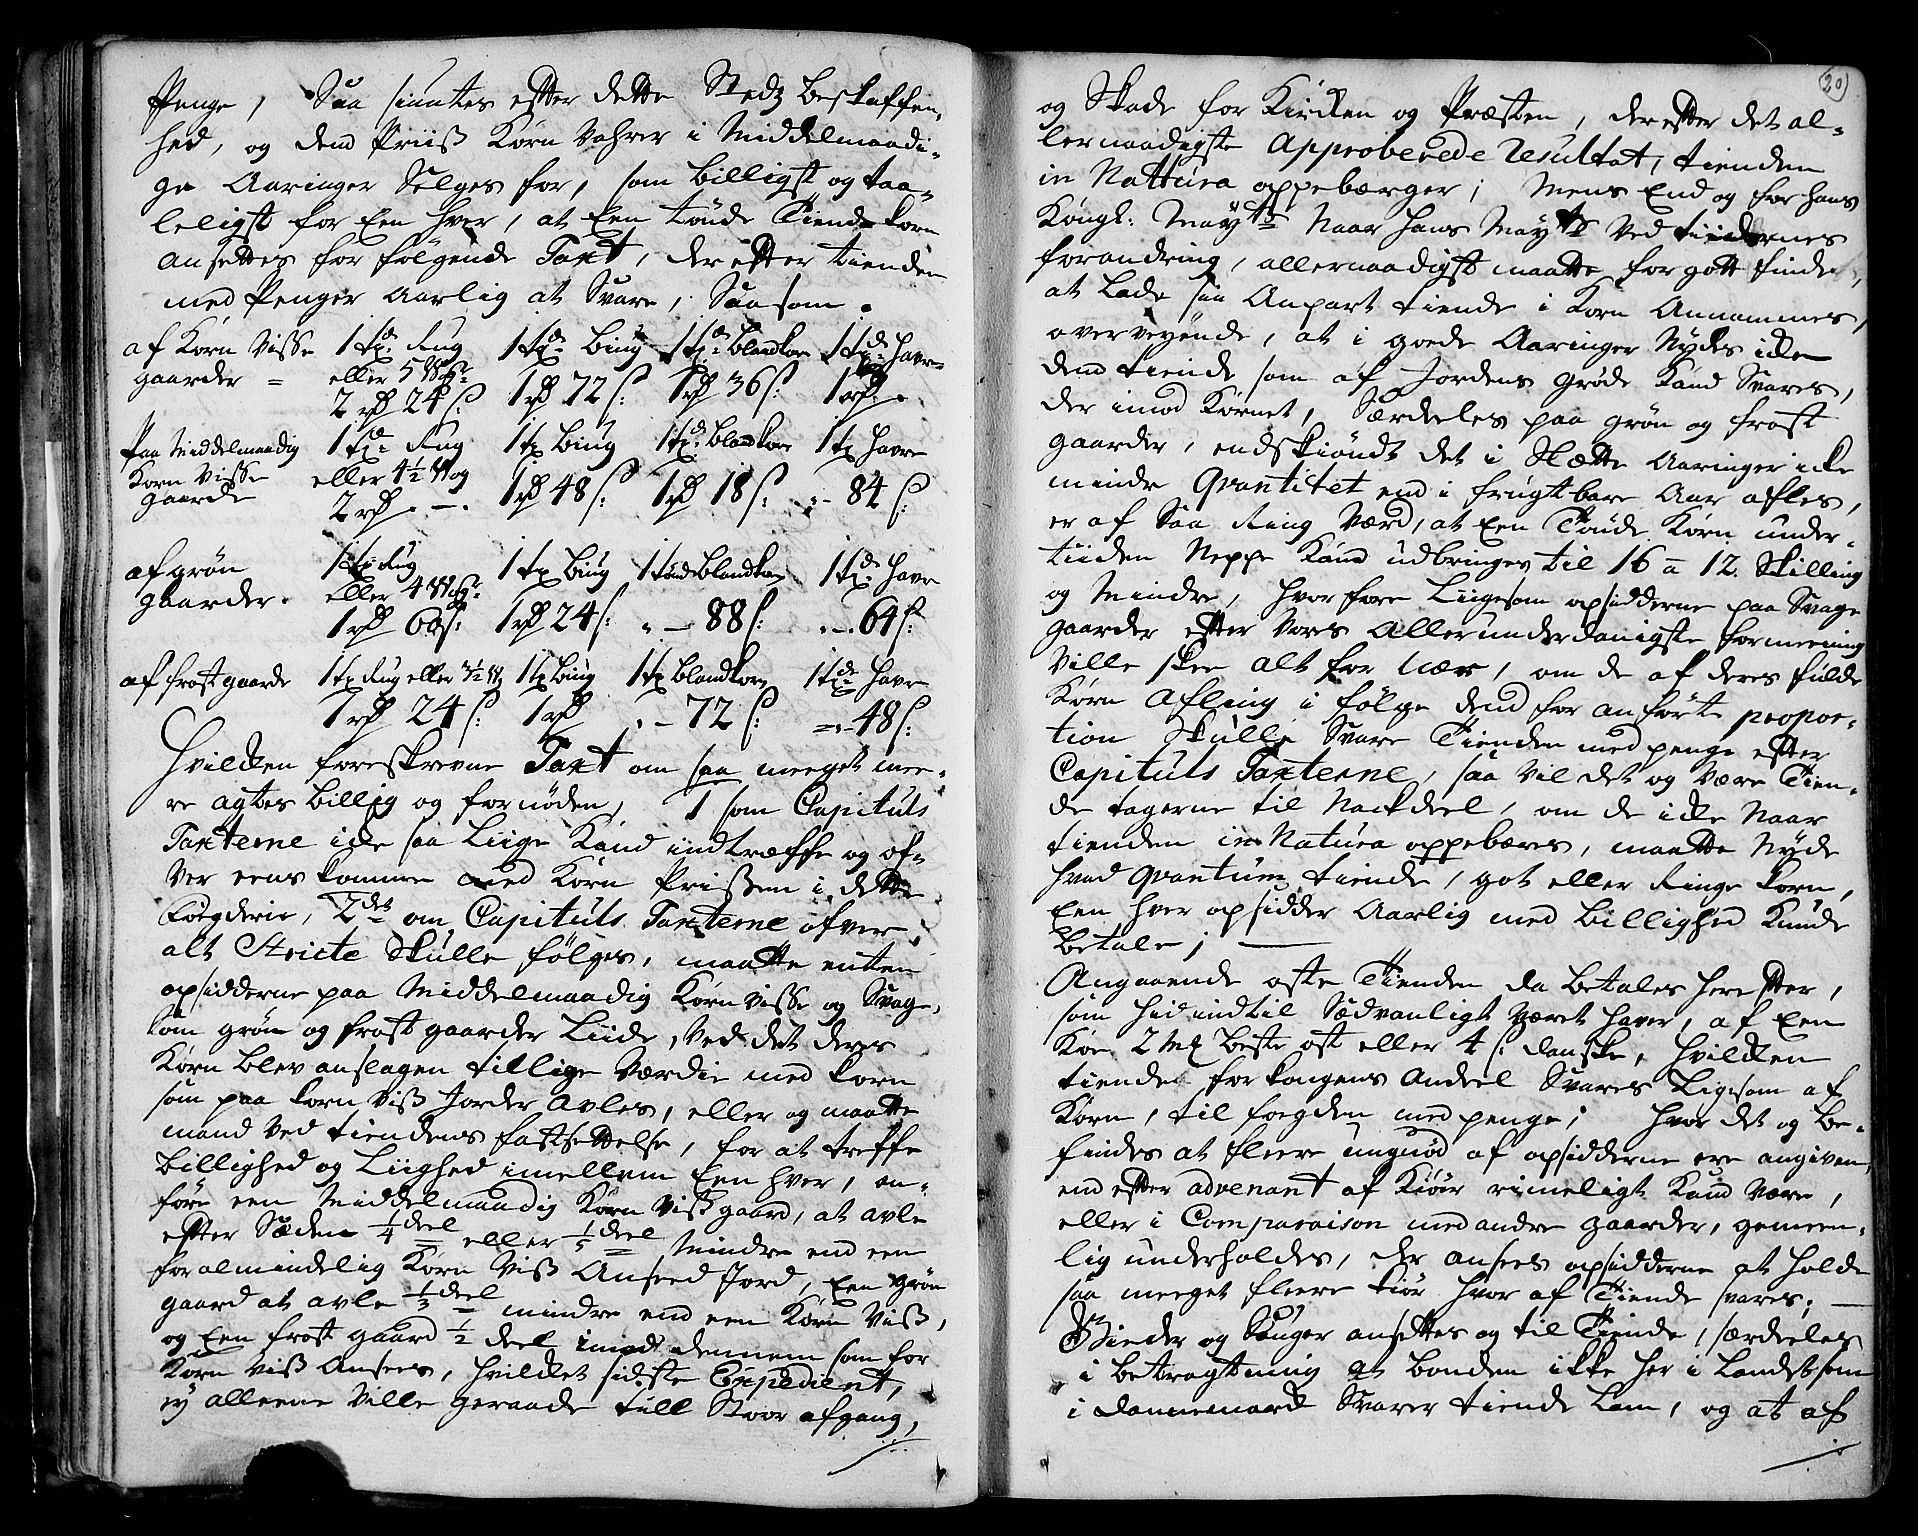 Penge, Saa siuntes efter dette Stedz beskaffen,
hed, og dend Priiss Korn Vahrer i Middelmaadi-
ge Aaringer Selges for, som billigst og taa-
leligst for Een hver, at Een tønde Tiende korn
ansettes for følgende Taxt, der efter tienden
med Penger Aarlig at Svare, Saasom.
af Korn Visse 1 td: Rug 1 td: Biug 1 td: blandkorn 1 td: Havre
gaarder = eller 5
2 rd 24 s: 1 rd 72 s: 1 rd 36 s: 1 rd.
Paa Middelmaadig 1 td: Rug 1 tr Biug 1 td: blandkorn 1 tr Havre
Korn Visse eller 4½ Wog
gaarde 2 rd. -. 1 rd 48 s: 1 rd 18 s: - 84 s:
af grøn 1 tr Rug 1 tr Biug 1 tønde blandkorn 1 td: Havre
gaarder. eller 4
1 rd 68 s: 1 rd 24 s: - 88 s: - 64 s:
af frost gaarde 1 tr Rug eller 3½ W 1 tr Biug 1 tr blandkorn 1 td: Havre
1 rd 24 s: 1 rd - 72 s: - 48 s:
Hvilken foreskrevne Taxt om saa meeget mee-
re agtes billig og fornøden, 1 som Capituls
Taxterne icke saa Liige Kand indtræffe og of-
ver eens komme med Korn Prissen i dette
Fogderie, 2des om Capituls Taxterne ofver
alt Stricte Skulle følges, maatte enten
opsidderne paa Middelmaadig Korn Visse og Svage,
som grøn og frost gaarder Liide, Ved det deres
Korn blev anslagen til lige Værdie med korn
som paa korn Viss Jorder avles, eller og maatte
mand ved tiendens fastsettelse, for at treffe
billighed og Liighed imellem Een hver, an-
føre een Middelmaadig Korn Viss gaard, at avle
efter Sæden ¼ deel eller ⅕ deel Mindre end een
foralmindelig Korn Viss Anseed Jord, Een grøn
gaard at avle ⅓ deel mindre end een Korn Viss,
og Een frost gaard ½ deel imod dennem som for
Korn Viss Ansees, hvilket sidste Expedient,
ey alleene Ville geraade till Stoor afgang,
20)
og Skade for Kircken og Præsten, der efter det al-
lernaadigste Approberede Resultat, tienden
in Nattura oppebærger; Mens End og for hans
Kongl: Mayts Naar hans Mayts Ved tiidernes
forandring, allernaadigst maatte for gott finde,
at Lade saa Anpart tiende i Korn Annammes,
overveyende, at i goede Aaringer Nydes icke
dend tiende som af Jordens grøde kand Svares,
der imod Kornet, Særdeeles paa grøn og frost
gaarder, endskiøndt det i Slette Aaringer icke
mindre Qvantitet end i frugtbare Aar afles,
er af Saa Ring Værd, at Een Tønde Korn under-
tiiden Neppe Kand udbringes til 16 a 12. Skilling
og Mindre, hvorfore Liigesom opsidderne paa Svage
gaarder efter Vores Allerunderdanigste formeening
Ville skee alt for Nær, om de af deres fulde
Korn Afling i følge dend for anførte propor-
tion Skulle Svare Tienden med penge efter
Capituls Taxterne, saa Vil det og Være Tien-
de tagerne til Nackdeel, om de icke Naar
tienden in Natura oppebæres, maatte Nyde
hvad Qvantum tiende, got eller Ringe korn,
Een hver opsidder Aarlig med billighed Kunde
betale;
Angaaende oste Tienden da betales herefter,
som hid indtil Sædvanligt Været haver, af Een
Koe 2 Mk beste ost eller 4 s: danske, hvilken
tiende for kongens Andeel Svares Ligesom af
Korn, til fogden med penge; hvor det og be-
findes at fleere ungnød af opsidderne ere angiven,
end efter advenant af Kiør rimeligt Kand Være,
eller i Comparaison med andre gaarder, gemeen-
lig underholdes, der ansees opsidderne at holde
saa meeget fleere kiør hvor af Tiende svares;
Gieder og Sauger ansettes og til Tiende, særdeeles
i betragtning at bonden ikke her i Landet som
i Dannemarck Svarer tiende Lam, og at af